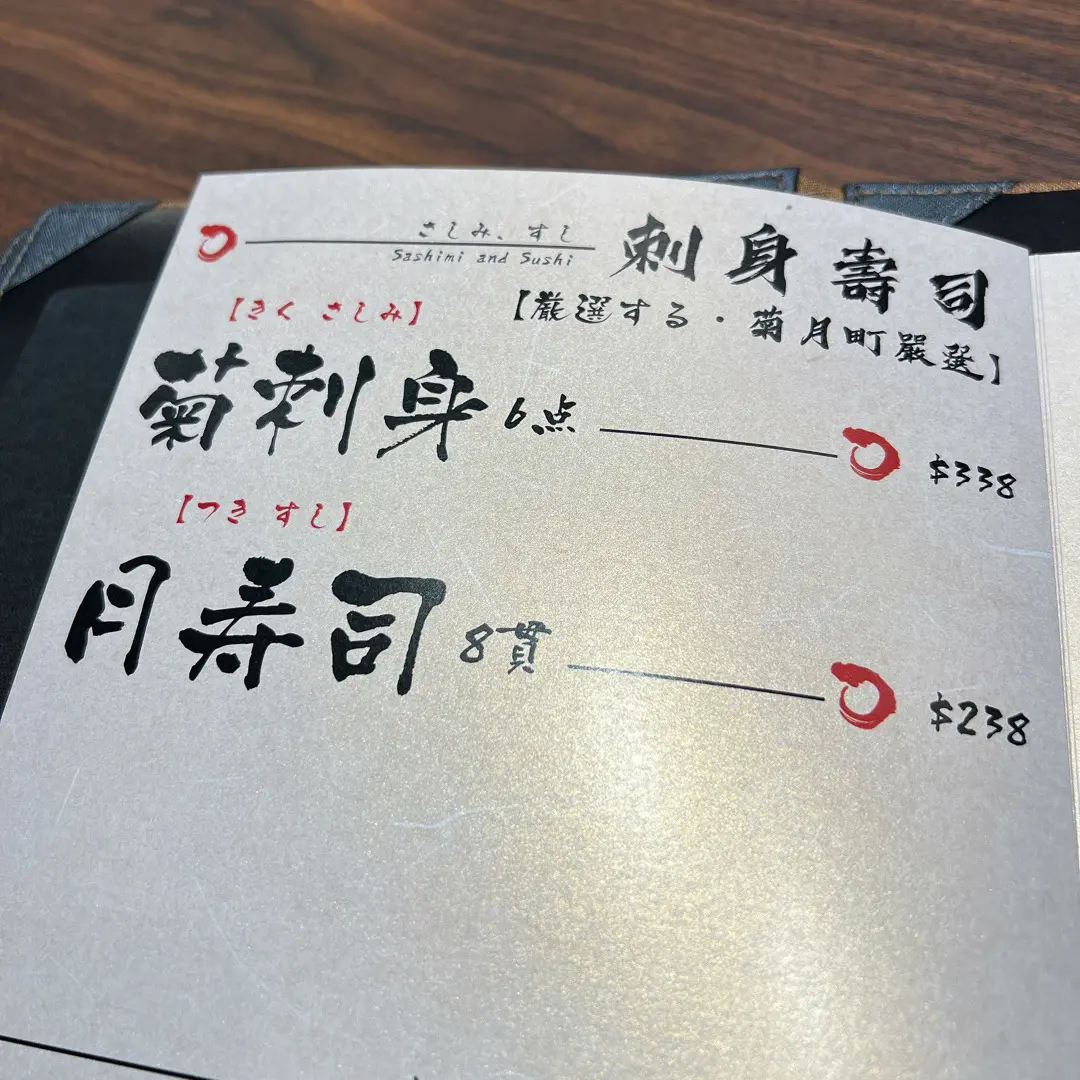 さしみ、すし
Sashimi and Sushi
刺身壽司
【厳選する・菊月町嚴選】
【きく さしみ】
菊刺身 6点 $338
【つき すし】
月寿司 8貫 $238